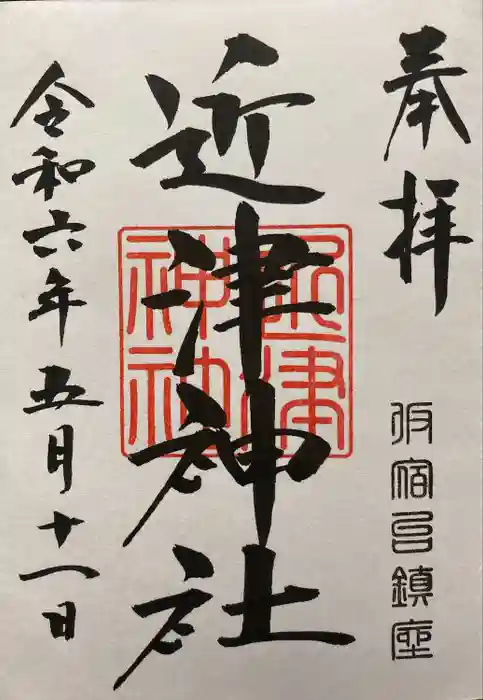 奉拝
仮宿邑鎮座
近津神社
近津神社
令和六年五月十一日